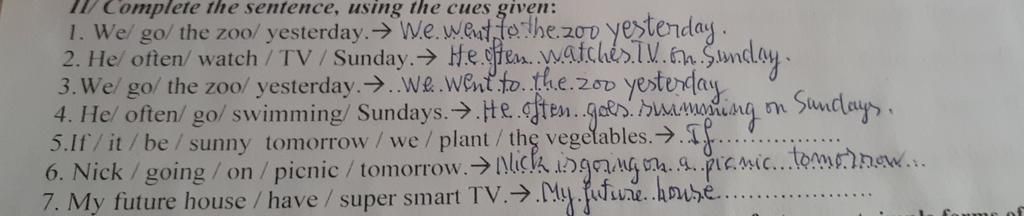 II/ Complete the sentence, using the cues given:
1. We/ go/ the zoo/ yesterday.→ We went to the zoo yesterday.
2. He/ often/ watch / TV / Sunday.→ He often watches TV on Sunday.
3.We/ go/ the zoo/ yesterday.→ We went to the zoo yesterday
4. He/ often/ go/ swimming/ Sundays.→ He often goes swimming on Sundays.
5.If / it / be / sunny tomorrow / we / plant / the vegetables.→ If...............
6. Nick / going / on / picnic / tomorrow.→ Nick is going on a picnic tomorrow...
7. My future house / have / super smart TV.→ My future house....................